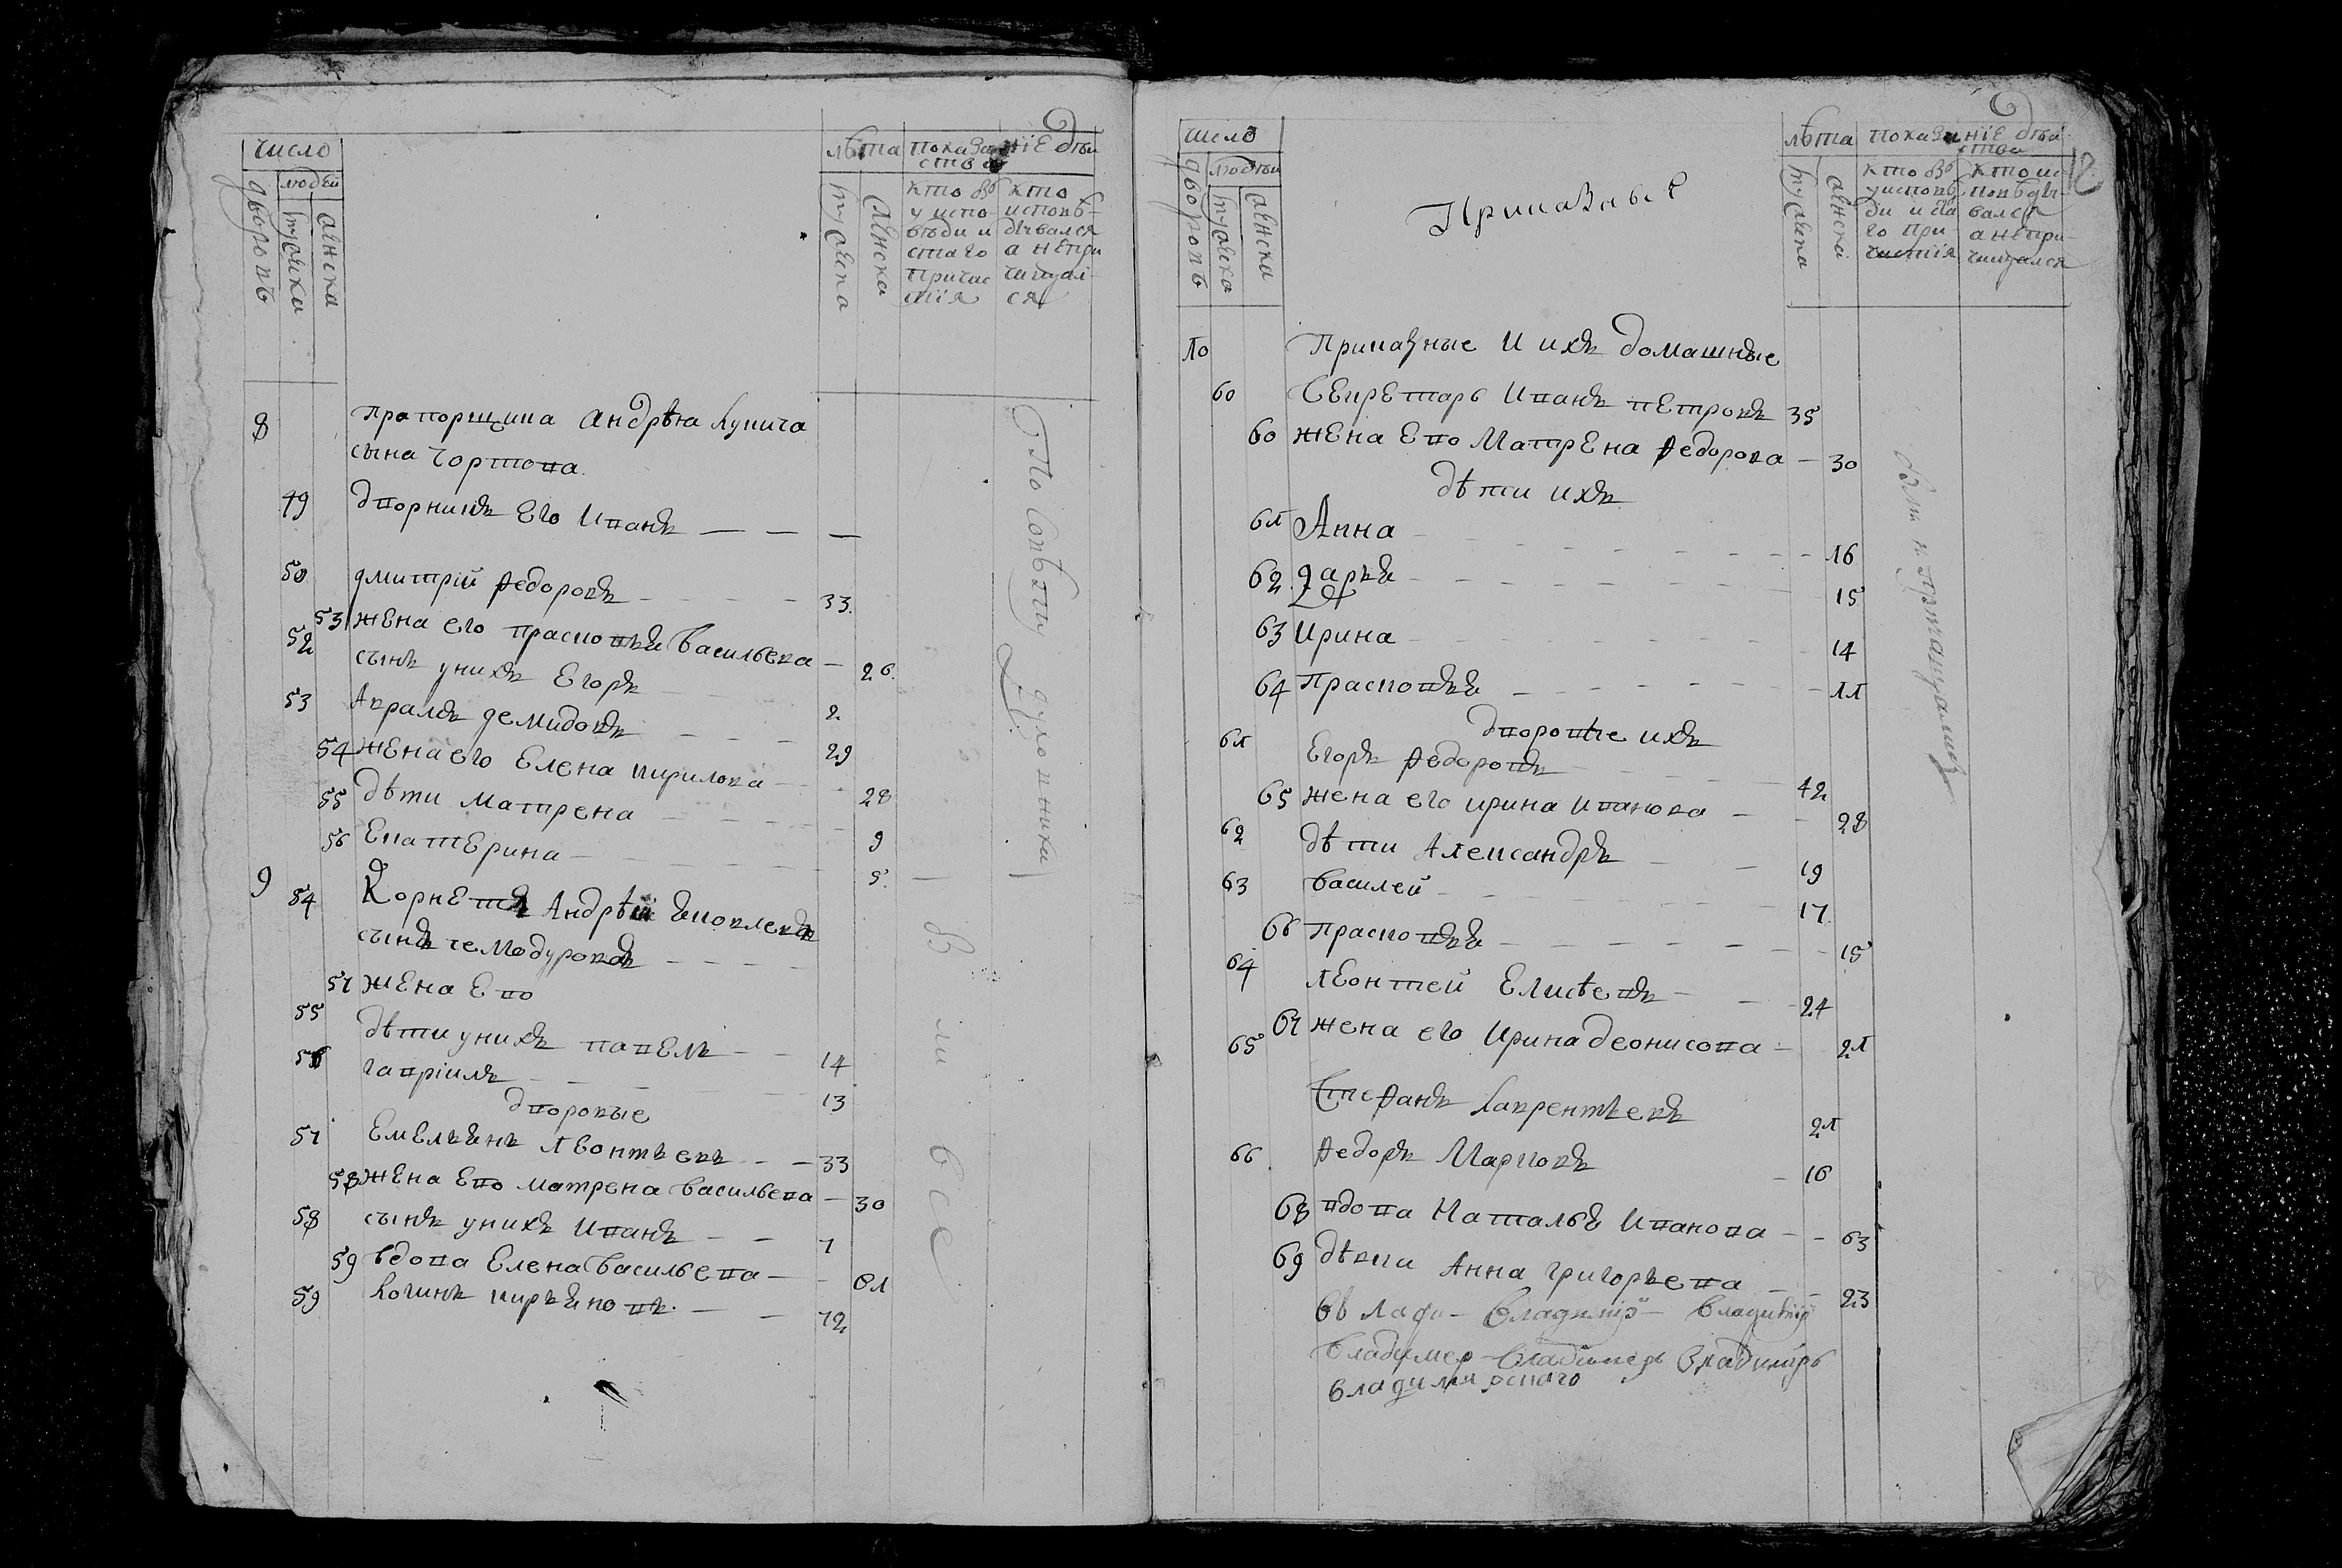 число
людей
дворовъ
мужска
женска
лѣта
мужска
женска
показание дѣи
ства
кто въ
у испо-
вѣди и
стаго
причас
тїя
кто
исповѣ-
дывался
а непри
чищал-
ся
8
прапорщика Андрѣя Лукича
сына Чортова
49 дворникъ его Иванъ — — —
50 дмитрїй Федоровъ 33
53 жена его прасковья васильева — 26
52 сынъ унихъ Егоръ 2
53 Аврамъ демидовъ 29
54 жена его Елена кирилова 28
55 дѣти Матрена 9
56 Екатерина 5
9 54 Корнетъ Андрѣй Яковлевъ
сынъ чемодуровъ
57 жена Ево
55 дѣти унихъ павелъ 14
56 гаврїилъ 13
дворовые
57 Емельянъ Леонтьевъ 33
58 жена Ево матрена васильева — 30
58 сынъ унихъ Иванъ 7
59 вдова Елена васильева
59 Логинъ кирьяновъ 72
духовники
вси
все
число
людѣи
дворовъ
мужска
женска
Приказные
лѣта
мужска
женска
показание дѣи
ства
кто въ
у исповѣ
ди и ста
го при
частїя
кто ис
повѣды
вался
а непри
чищался
10 Приказные И ихъ домашные
60 Секретарь Иванъ петровъ 35
60 жена Ево Матрена Федорова — 30
дѣти ихъ
61 Анна 16
62 дарья 15
63 Ирина 14
64 Прасковья 11
дворовые ихъ
61 Егоръ Федоровъ 42
65 жена его ирина Иванова 28
62 дѣти Александръ 19
63 василей 17
66 прасковья 15
64 Леонтей Елисѣевъ 24
67 жена его Ирина деонисова 21
65 Стефанъ Лаврентьевъ 21
66 Федоръ Марковъ 16
68 вдова Наталья Иванова 63
69 дѣвка Анна григорьева 23
Владимер Владимеръ Владимиръ